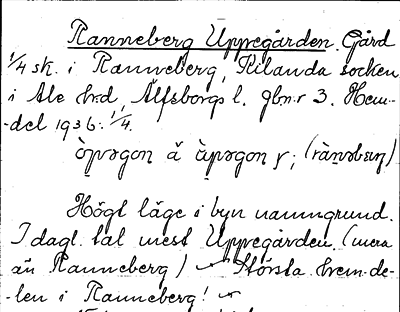 Ranneberg Uppegården. Gård
1/4 sk. i Ranneberg, Kilanda socken
i Ale hrd, Älfsborgs l. gbnr 3. Hem-
-del 1936: 1/4.
i byn namngrund.
Högt läge i byn namngrund.
I dagl. tal mest Uppegården (mera
än Ranneberg) Största hem-de-
-len i Ranneberg!